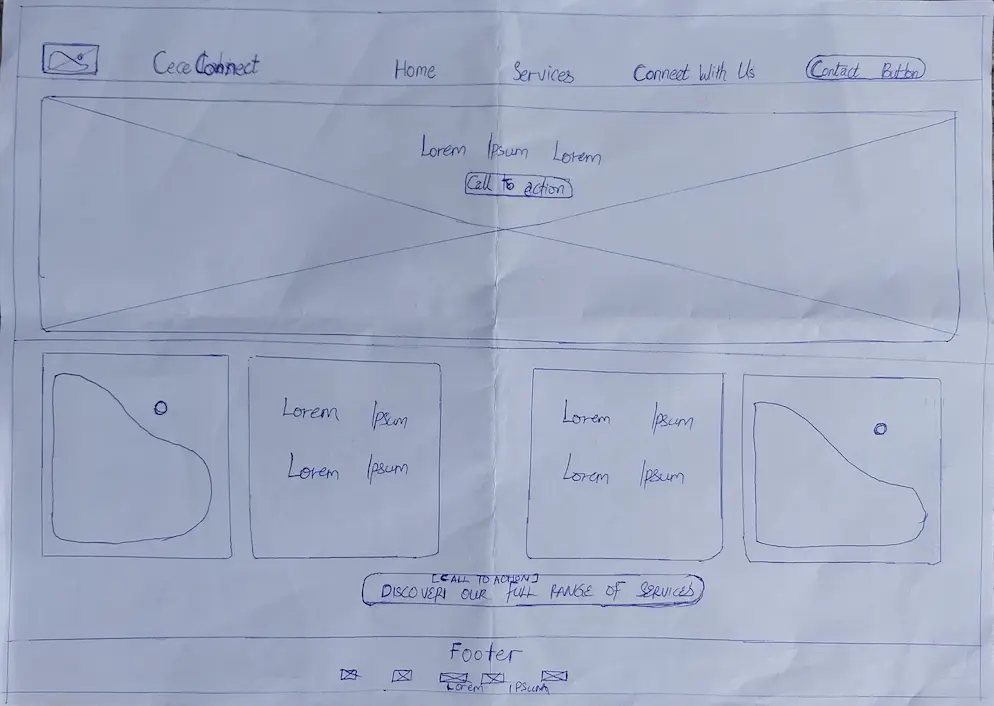 Cece Connect Home Services Connect With Us Contact Button
Lorem Ipsum Lorem
Call to action
Lorem Ipsum
Lorem Ipsum
Lorem Ipsum
Lorem Ipsum
[CALL TO ACTION]
DISCOVER OUR FULL RANGE OF SERVICES
Footer
Lorem IPSUM